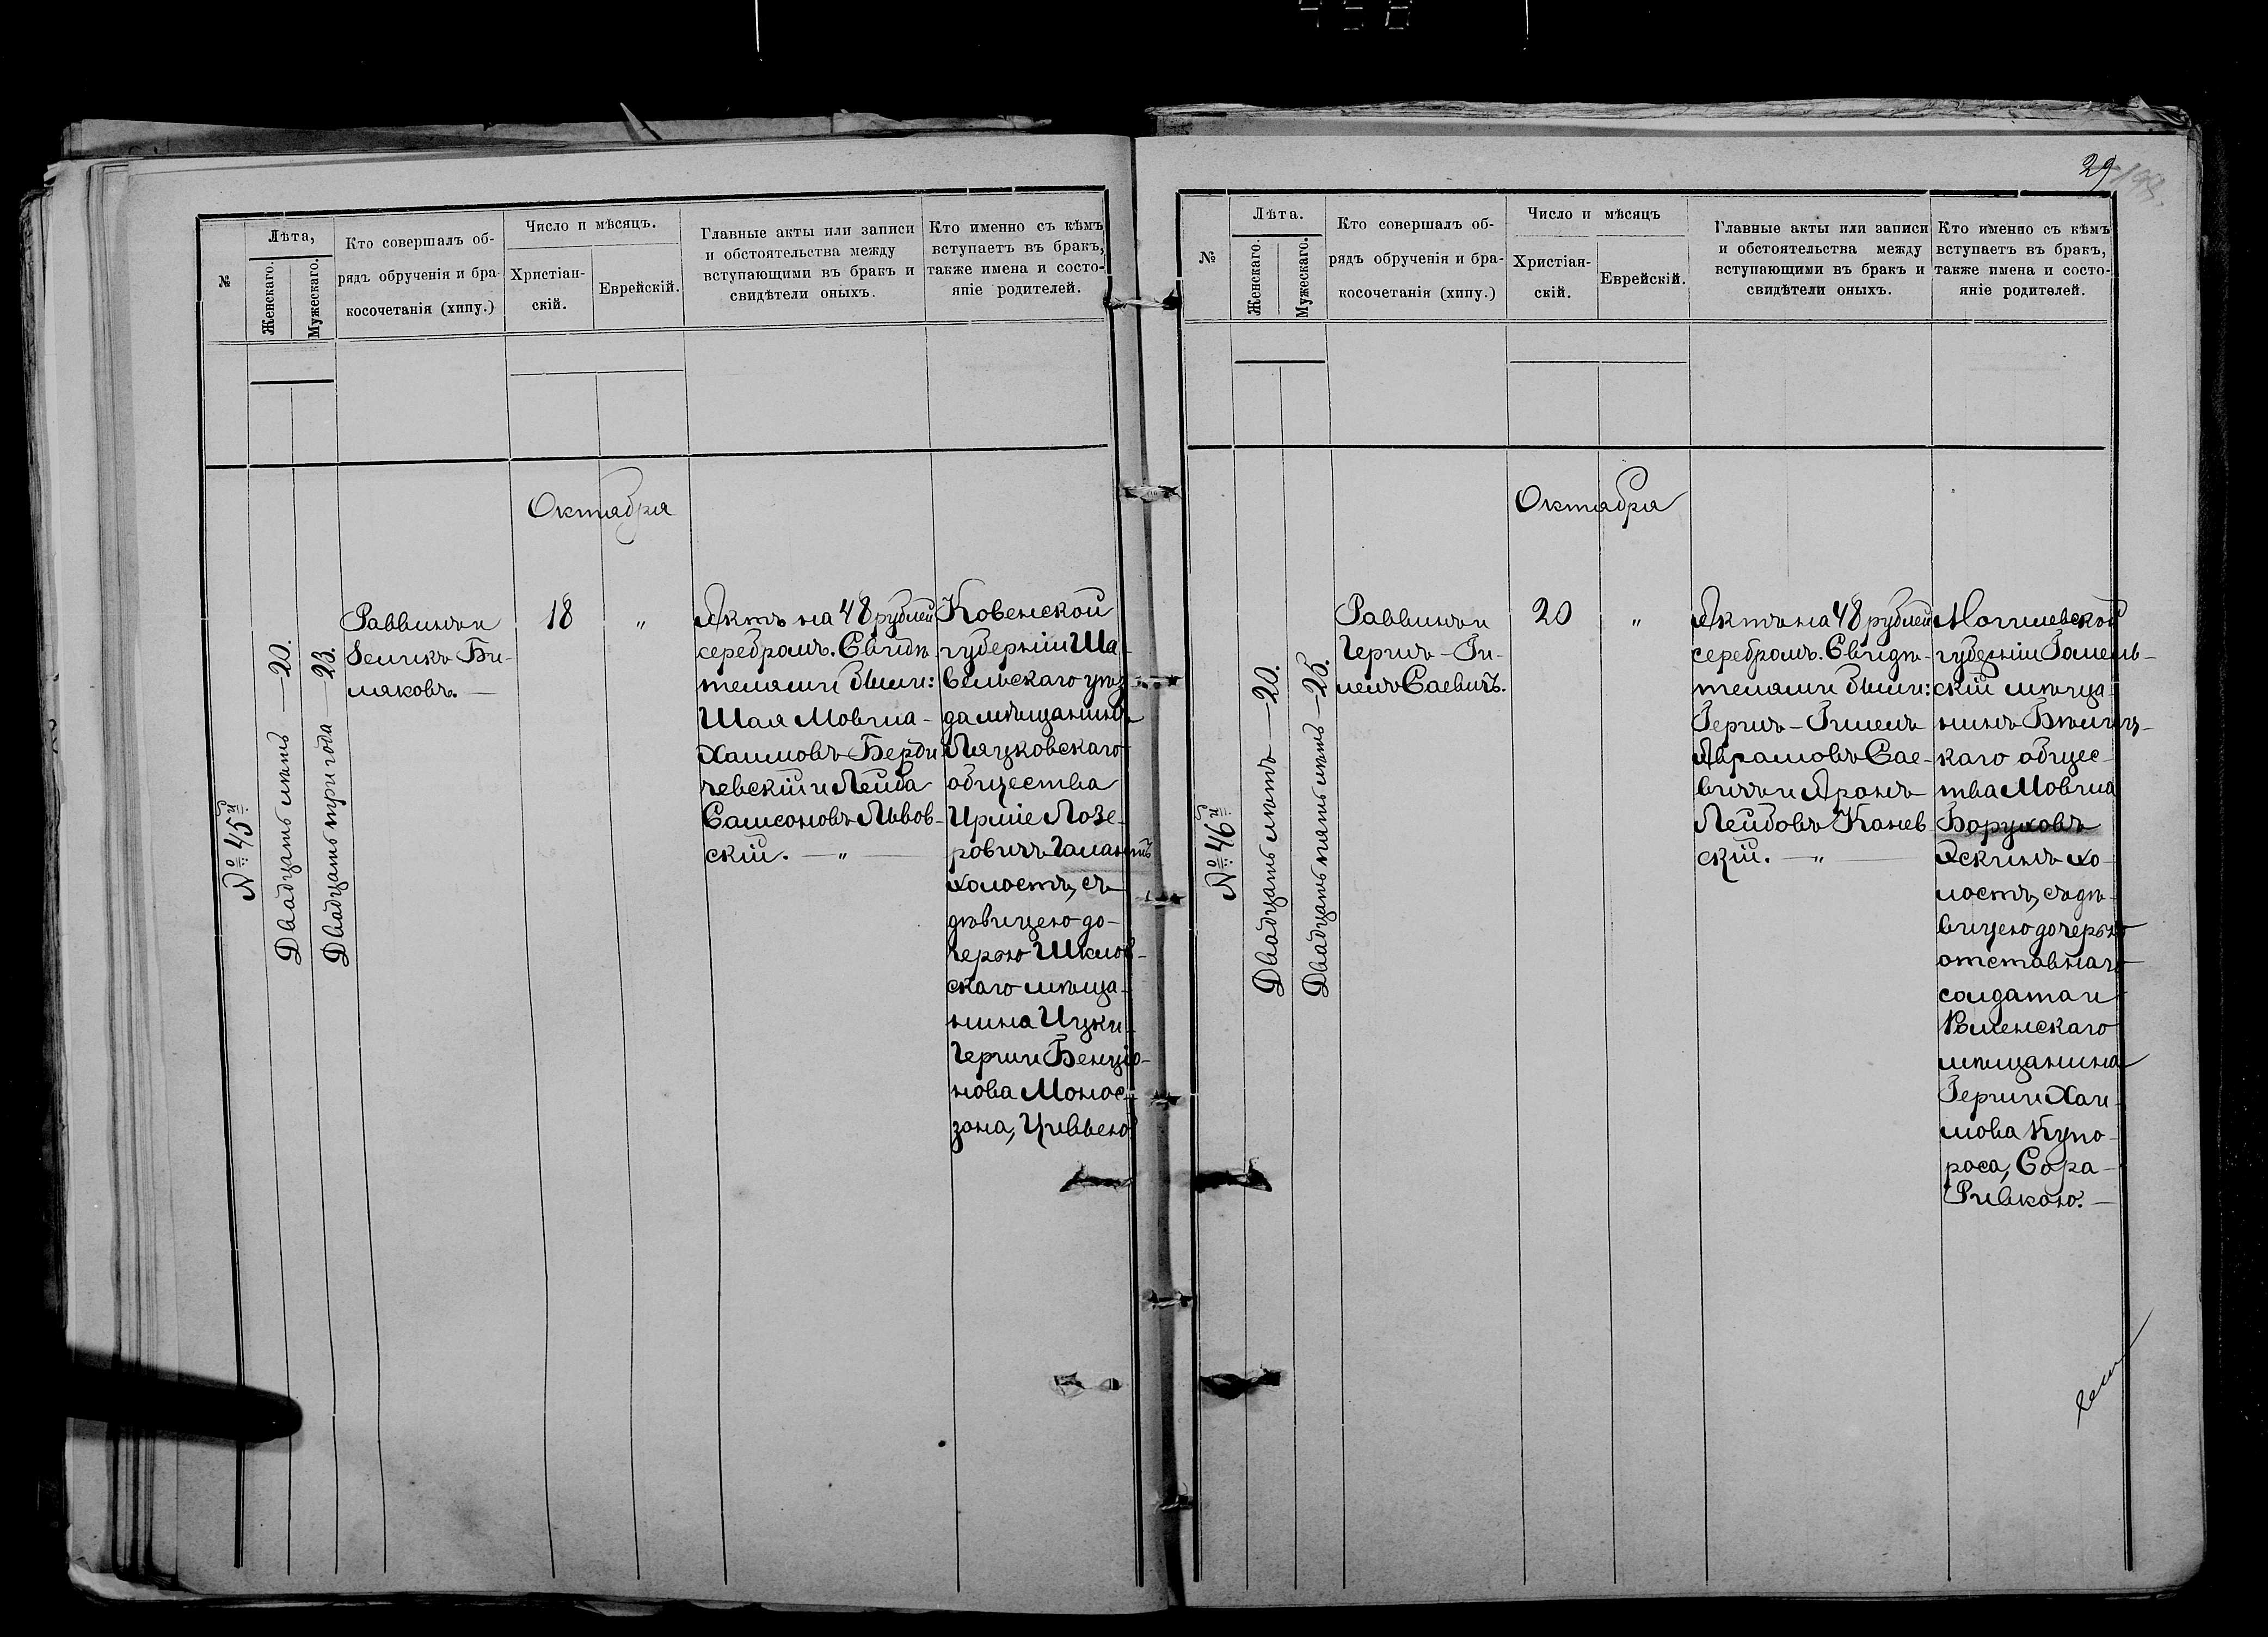 №
Лѣта,
Женскаго.
Мужескаго.
Кто совершалъ об-
рядъ обрученія и бра
косочетанія (хипу.)
Число и мѣсяцъ.
Христіан-
скій.
Еврейскій.
Главные акты или записи
и обстоятельства между
вступающими въ бракъ и
свидѣтели оныхъ.
Кто именно съ кѣмъ
вступаетъ въ бракъ,
также имена и состо-
яніе родителей.
Октября
№ 45й
Двадцать лѣтъ — 20.
Двадцать три года — 23.
Раввинъ и
Зеликъ Би-
ляковъ. —
18
„
Актъ на 48 рублей
серебромъ. Свидѣ-
телями были:
Шая Мовша-
Хаимовъ Берди
чевскій и Лейба
Самсоновъ Львов-
скій. — „ —
Ковенской
губерніи Ша-
вельскаго уѣз-
да мѣщанинъ
Ляцковскаго
общества
Иршіе Лозе-
ровичъ Галантъ
холостъ, съ
дѣвицею до-
черью Шклов-
скаго мѣща-
нина Ицки-
Герши Бенціо-
нова Моносс-
зона, Цивьею
29
№
Лѣта.
Женскаго.
Мужескаго.
Кто совершалъ об-
рядъ обрученія и бра-
косочетанія (хипу.)
Число и мѣсяцъ
Христіан-
скій.
Еврейскій.
Главные акты или записи
и обстоятельства между
вступающими въ бракъ и
свидѣтели оныхъ.
Кто именно съ кѣмъ
вступаетъ въ бракъ,
также имена и состо-
яніе родителей.
Октября
№ 46й
Двадцать лѣтъ — 20.
Двадцать пять лѣтъ — 25.
Раввинъ и
Гершъ-Ги-
мелъ Саевичъ.
20
„
Актъ на 48 рублей
серебромъ. Свидѣ-
телями были:
Гершъ-Гимелъ
Аврамовъ Сае-
вичъ и Аронъ
Лейбовъ Канев
скій. — „ —
Могилевской
губерніи Гомель-
скій мѣща-
нинъ Бѣлиц-
каго общес-
тва Мовша
Боруховъ
Аскинъ хо-
лостъ, съ дѣ-
вицею дочерью
отставнаго
солдата и
Роменскаго
мѣщанина
Герши Хаи-
мова Купо-
роса, Сора-
Ривкою. —